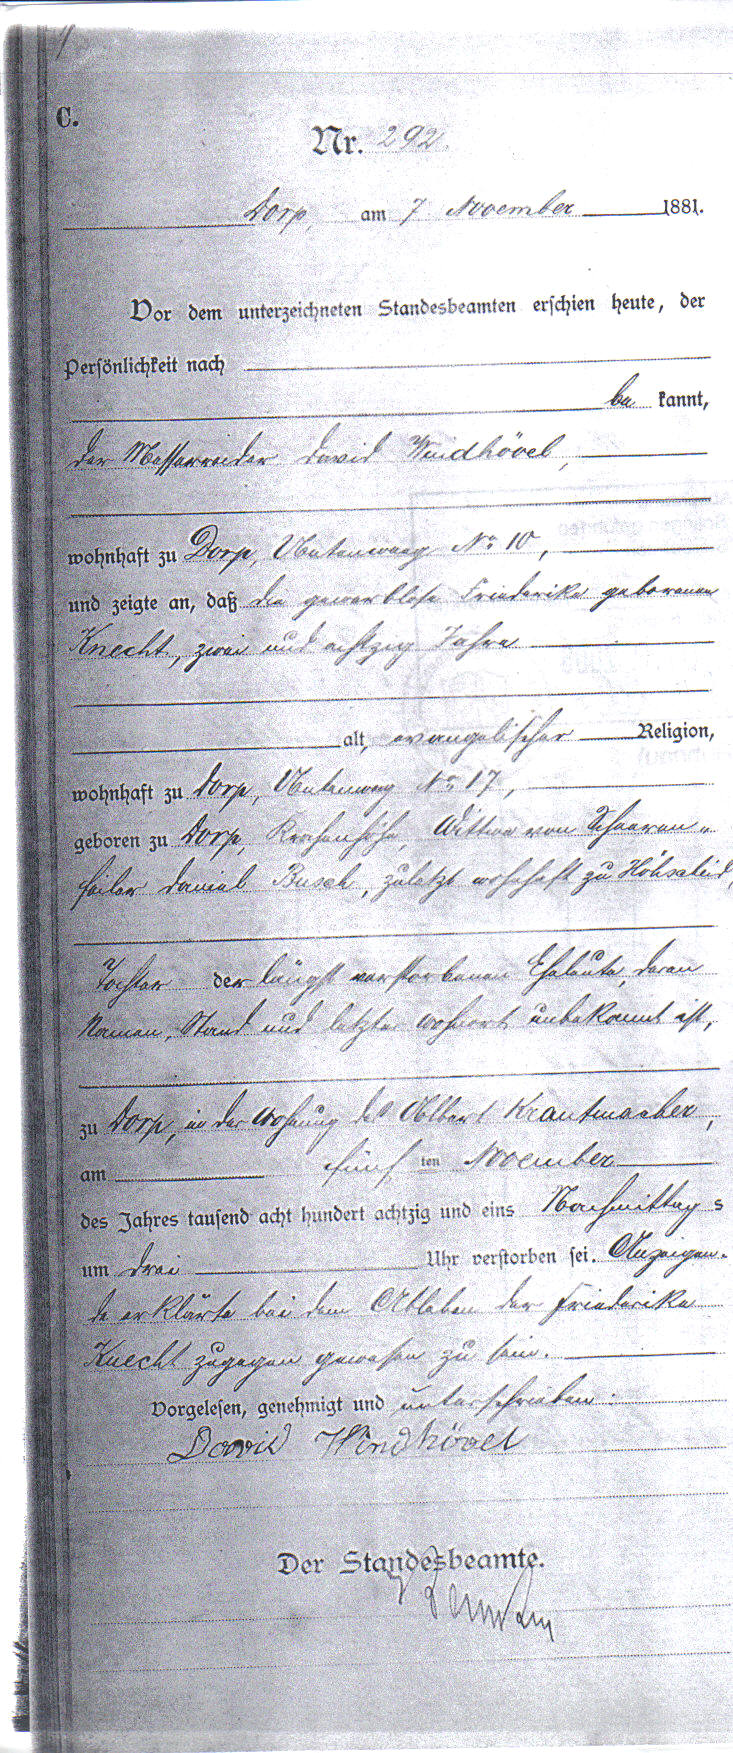 C.
Nr. 292.
Dorp, am 7 November 1881.
Vor dem unterzeichneten Standesbeamten erschien heute, der
Persönlichkeit nach
be kannt,
der Messerreider David Windhövel,
wohnhaft zu Dorp, No 10,
und zeigte an, daß die gewerblose Friederike geborenen
Knecht, zwei und achtzig Jahre
alt, evangelischer Religion,
wohnhaft zu Dorp, No 17,
geboren zu Dorp, Krahenhöhe, Wittwe von Scheeren-
feiler Daniel Busch, zuletzt wohnhaft zu Höhscheid,
Tochter der längst verstorbenen Eheleute, deren
Namen, Stand und letzter Wohnort unbekannt ist,
zu Dorp, in der Wohnung des Albert Krautmacher,
am fünf ten November
des Jahres tausend acht hundert achtzig und eins Nachmittag s
um drei Uhr verstorben sei. Anzeigen-
de erklärte bei dem Ableben der Friederike
Knecht zugegen gewesen zu sein.
Vorgelesen, genehmigt und unterschrieben:
David Windhövel
Der Standesbeamte.